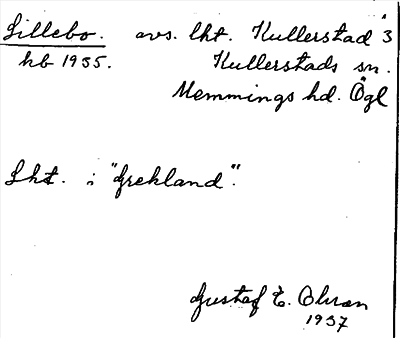 Lillebo. avs. lht. Kullerstad 3
hb 1935. Kullerstads sn.
Memmings hd. Ögl
Lht. i "Grekland".
Gustaf E. Olsson
1937